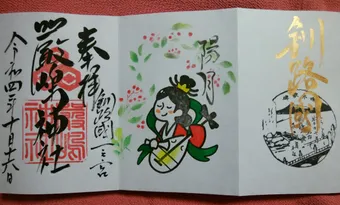 釧路國
陽月
奉拝
釧路國一之宮
嚴島神社
令和四年十月十六日